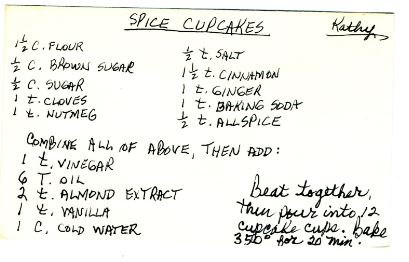 SPICE CUPCAKES
Kathy
1 1/2 C. FLOUR
1/2 C. BROWN SUGAR
1/2 C. SUGAR
1 t. CLOVES
1 t. NUTMEG
1/2 t. SALT
1 1/2 t. CINNAMON
1 t. GINGER
1 t. BAKING SODA
1/2 t. ALLSPICE
COMBINE ALL OF ABOVE, THEN ADD:
1 t. VINEGAR
6 T. OIL
2 t. ALMOND EXTRACT
1 t. VANILLA
1 C. COLD WATER
Beat together,
then pour into 12
cupcake cups. Bake
350° for 20 min.